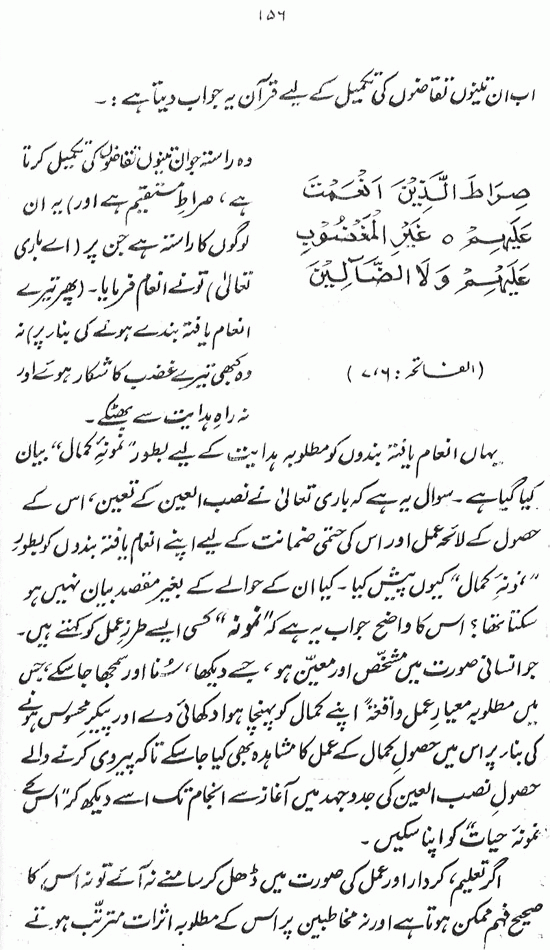 ۱۵۶
اب ان تینوں تقاضوں کی تکمیل کے لیے قرآن یہ جواب دیتا ہے :۔
صِرَاطَ الَّذِيْنَ اَنْعَمْتَ
عَلَيْهِمْ ○ غَيْرِ الْمَغْضُوْبِ
عَلَيْهِمْ وَلَا الضَّآلِّيْنَ
(الفاتحہ : ۶،۷)
وہ راستہ جو ان تینوں تقاضوں کی تکمیل کرتا
ہے ، صراطِ مستقیم ہے اور) یہ ان
لوگوں کا راستہ ہے جن پر ( اے باری
تعالیٰ) تو نے انعام فرمایا۔ (پھر تیرے
انعام یافتہ بندے ہونے کی بنا پر) نہ
وہ کبھی تیرے غضب کا شکار ہوئے اور
نہ راہِ ہدایت سے بھٹکے ۔
یہاں انعام یافتہ بندوں کو مطلوبہ ہدایت کے لیے بطور "نمونۂ کمال" بیان
کیا گیا ہے ۔ سوال یہ ہے کہ باری تعالیٰ نے نصب العین کے تعین ، اس کے
حصول کے لائحہ عمل اور اس کی حتمی ضمانت کے لیے اپنے انعام یافتہ بندوں کو بطور
"نمونۂ کمال" کیوں پیش کیا ۔ کیا ان کے حوالے کے بغیر مقصد بیان نہیں ہو
سکتا تھا ؟ اس کا واضح جواب یہ ہے کہ "نمونہ" کسی ایسے طرزِ عمل کو کہتے ہیں۔
جو انسانی صورت میں مشخّص اور معیّن ہو ، جسے دیکھا ، سُنا اور سمجھا جا سکے ، جس
میں مطلوبہ معیارِ عمل واقعۃً اپنے کمال کو پہنچا ہوا دکھائی دے اور پیکرِ محسوس ہونے
کی بنا پر اس میں حصولِ کمال کے عمل کا مشاہدہ بھی کیا جا سکے تاکہ پیروی کرنے والے
حصولِ نصب العین کی جدوجہد میں آغاز سے انجام تک اسے دیکھ کر "اس کے
نمونۂ حیات" کو اپنا سکیں ۔
اگر تعلیم ، کردار اور عمل کی صورت میں ڈھل کر سامنے نہ آئے تو نہ اس کا
صحیح فہم ممکن ہوتا ہے اور نہ مخاطبین پر اس کے مطلوبہ اثرات مترتّب ہوتے